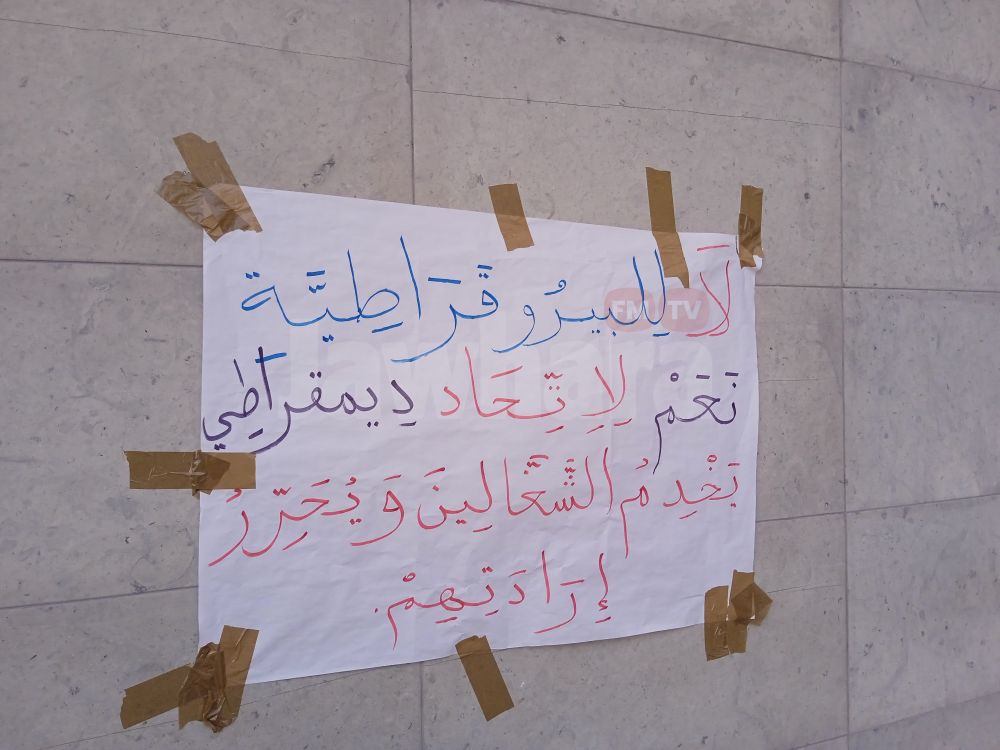 لَا لِلبيرُوقَرَاطِيَّة
نَعَمْ لِاِتِّحَاد دِيمقراطِي
يَخْدِمُ الشَّغَّالِينَ وَيُحَرِّرُ
إِرَادَتِهِمْ.
FM TV
Jawhara